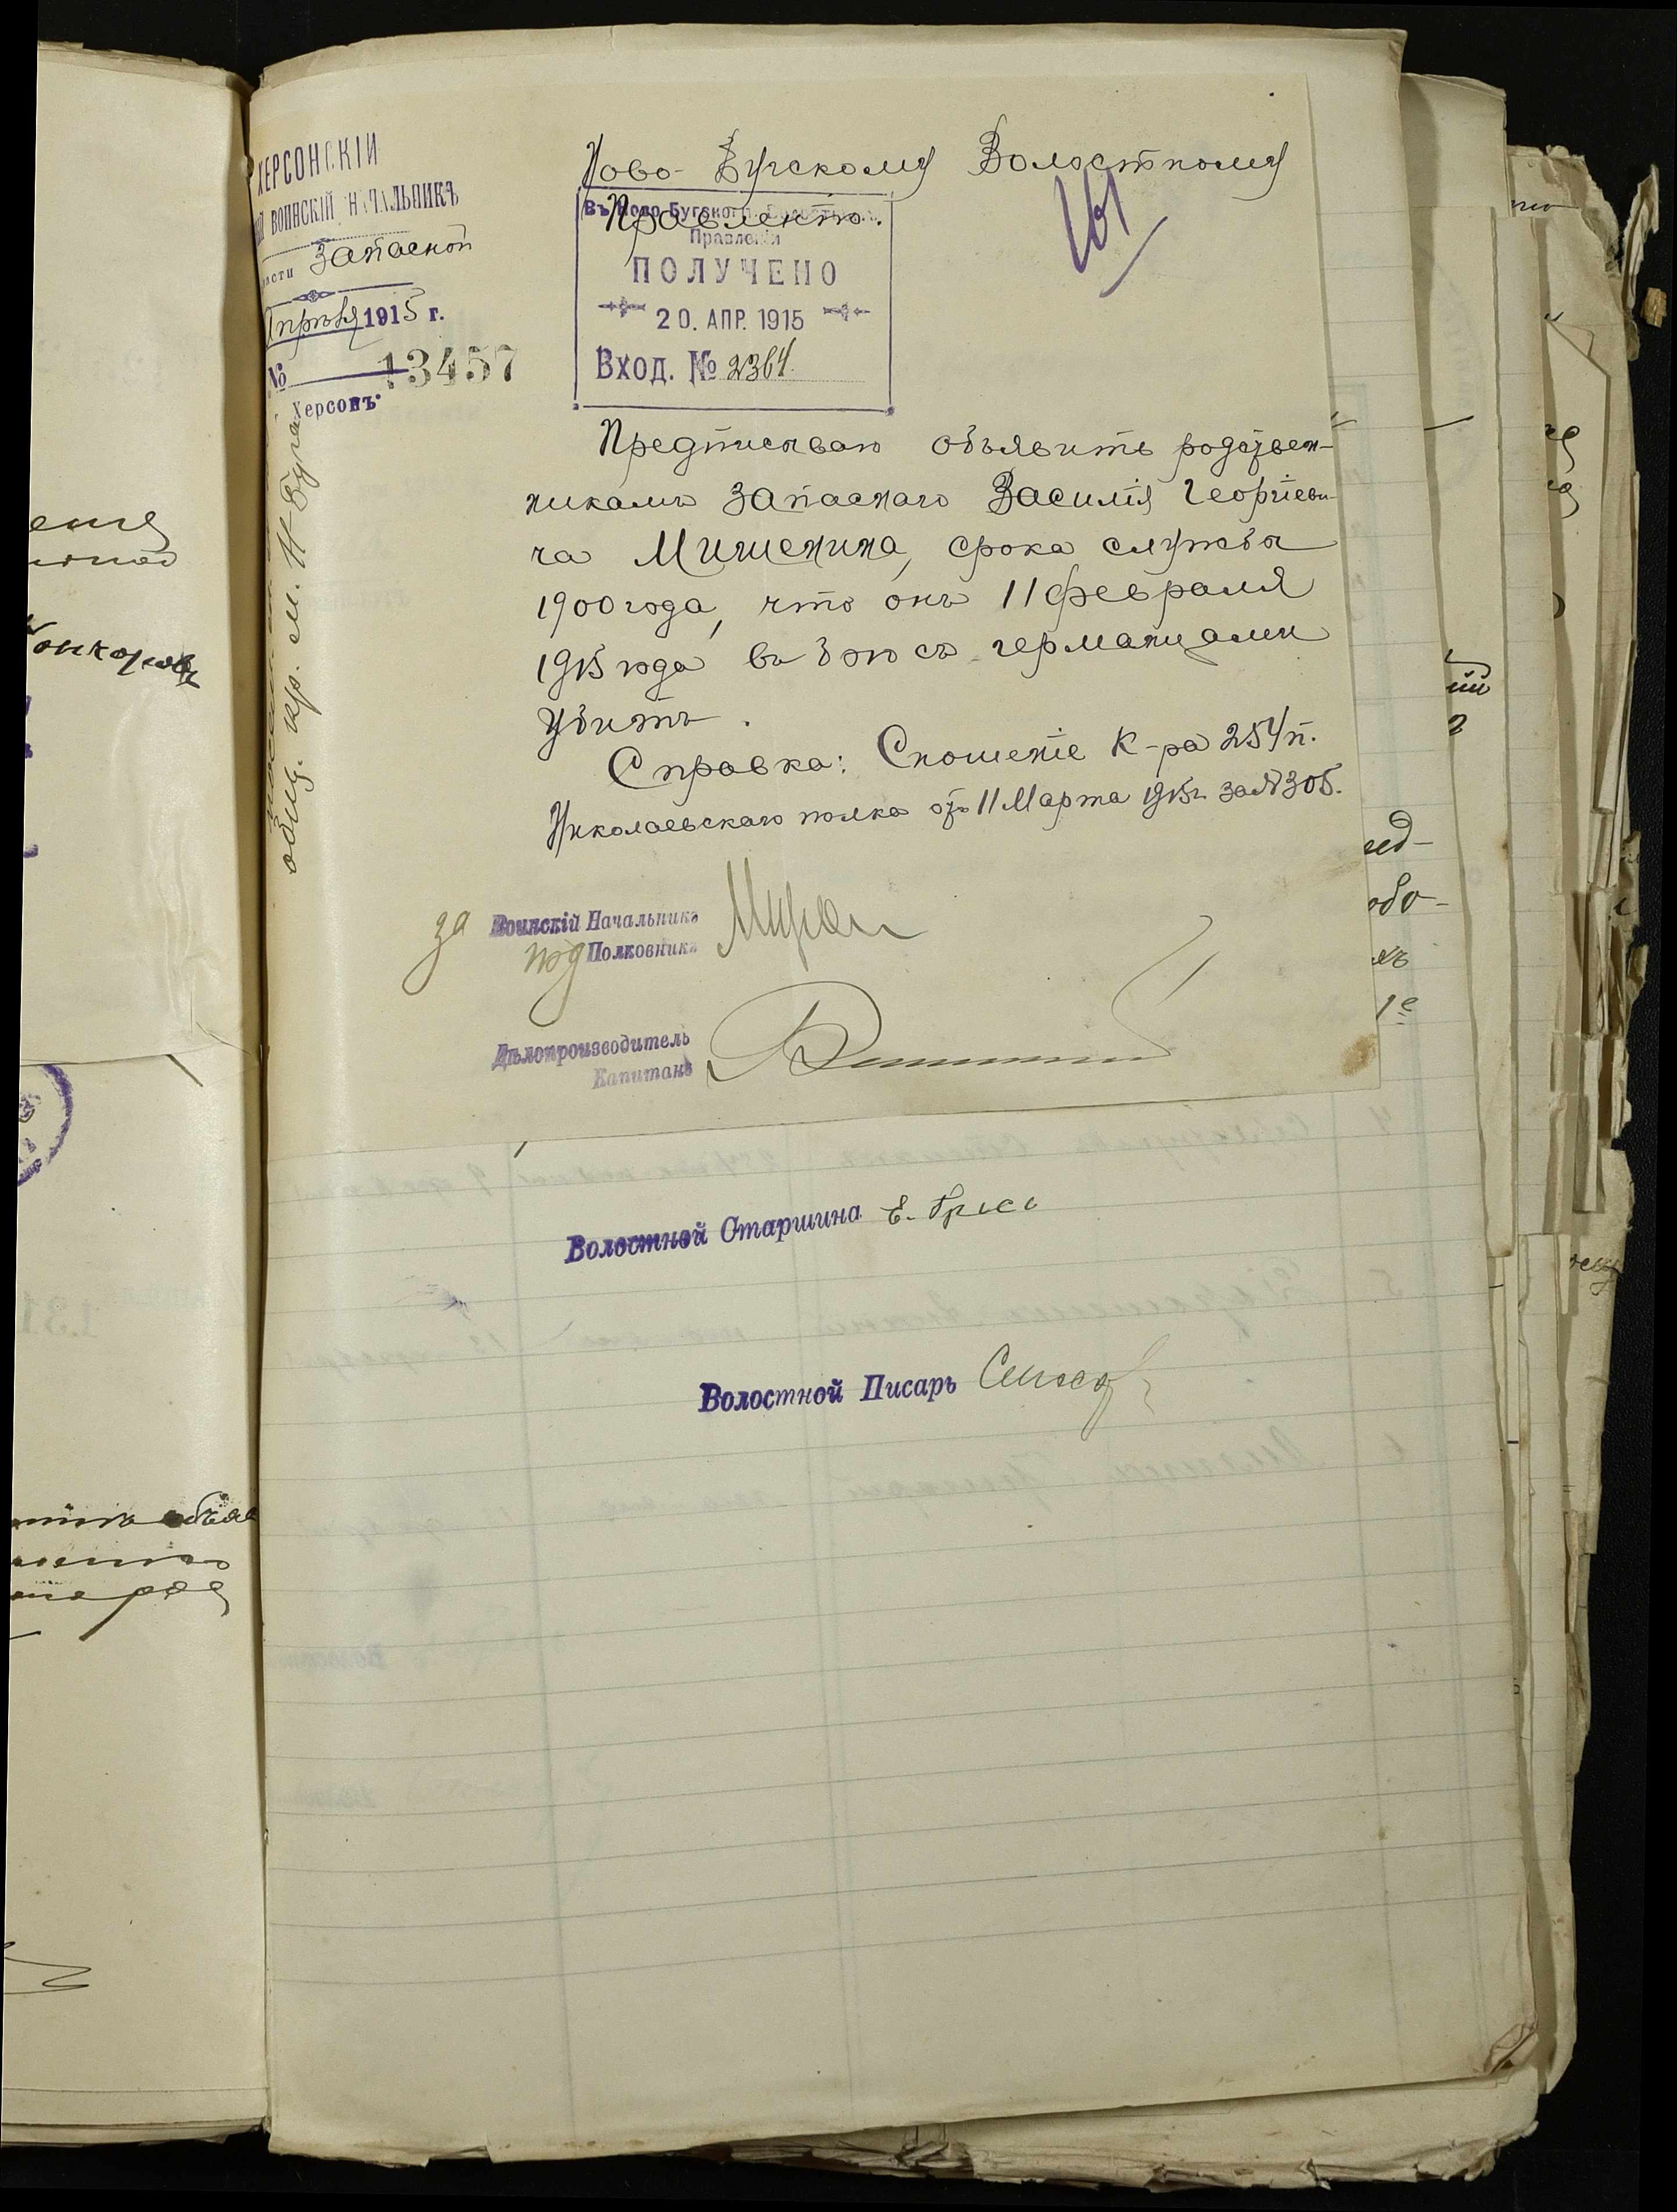 ХЕРСОНСКІЙ
ВОИНСКІЙ НАЧАЛЬНИКЪ
Запасной
Апрѣля 1915 г.
№ 13457
Херсонъ
общ. кр. м. Н-Буга
Ново-Бугскому Волостному
Правленію.
161
Въ Ново-Бугском Волостном
Правленіи
ПОЛУЧЕНО
20. АПР. 1915
Вход. № 2364
Предписываю объявить родствен-
никамъ запаснаго Василія Георгіеви-
ча Мишенина, срока службы
1900 года, что онъ 11 февраля
1915 года въ бою съ германцами
убитъ.
Справка: Сношеніе К-ра 254 п.
Николаевскаго полка отъ 11 Марта 1915 г. за № 305.
за Воинскій Начальникъ
под Полковникъ
Дѣлопроизводитель
Капитанъ
Волостной Старшина Е.
Волостной Писарь